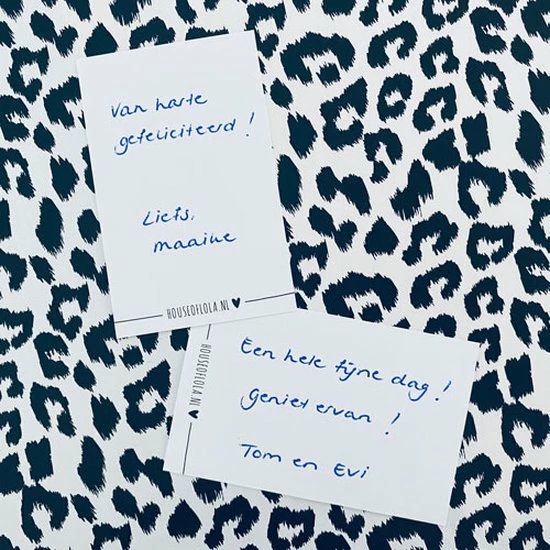 Van harte
gefeliciteerd!
Liefs,
maaike
HOUSEOFLOLA.NL ♥
Een hele fijne dag!
Geniet ervan!
Tom en Evi
HOUSEOFLOLA.NL ♥